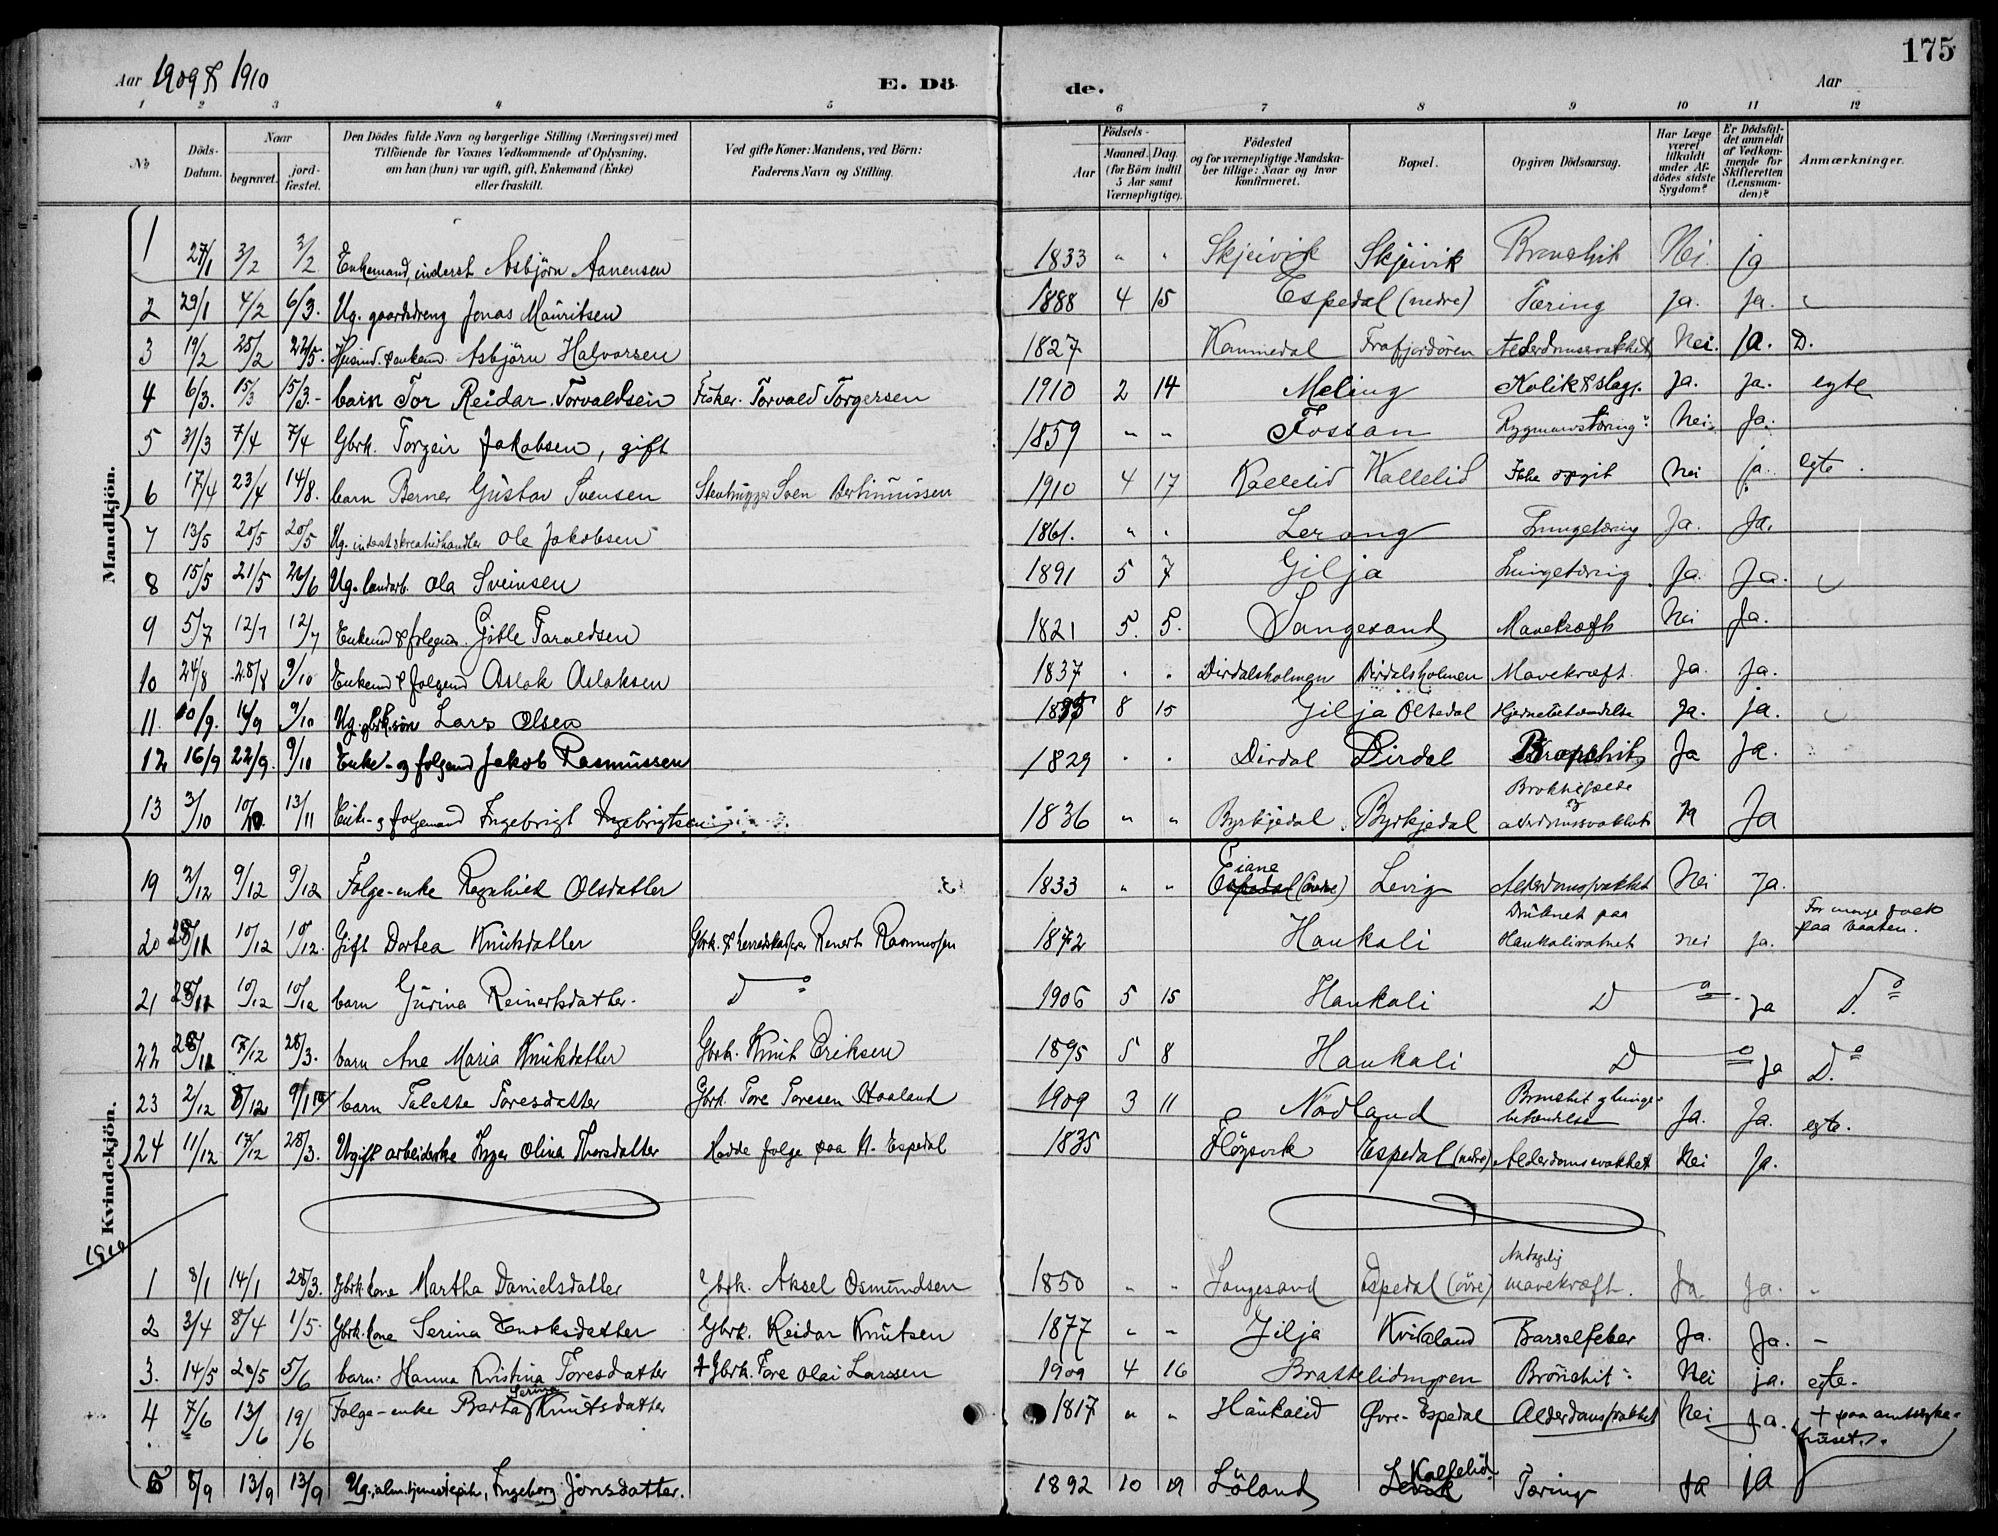 175
Aar 1909 & 1910 E. Dö de. Aar
1 2 3 4 5 6 7 8 9 10 11 12
No Döds-Datum. Naar begravet. jord-fæstet. Den Dödes fulde Navn og borgerlige Stilling (Næringsvei) med Tilföiende for Voxnes Vedkommende af Oplysning, om han (hun) var ugift, gift, Enkemand (Enke) eller fraskilt. Ved gifte Koner: Mandens, ved Börn: Faderens Navn og Stilling. Födsels- Aar Maaned. Dag (for Börn indtil 5 Aar samt Værnepligtige). Födested og for værnepligtige Mandskaber tillige: Naar og hvor konfirmeret. Bopæl. Opgiven Dödsaarsag. Har Læge været tilkaldt under Afdödes sidste Sygdom? Er Dödsfaldet anmeldt af Vedkommende for Skifteretten (Lensmanden)? Anmærkninger.
Mandkjön.
1 27/1 3/2 3/2 Enkemand, inderst Asbjörn Aanensen 1833 " " Skjeivik Skjeivik Bronchit Nei ja
2 29/1 4/2 6/3. Ug. gaardsdreng Jonas Mauritsen 1888 4 15 Espedal (nedre) Tæring ja. ja.
3 19/2 25/2 22/5. Husmd. & enkem. Asbjörn Halvorsen 1827 Kommedal Frafjordören Alderdomssvakhet Nei. ja. D.
4 6/3. 15/3 15/3.- barn Tor Reidar Torvaldsen Fisker. Torvald Torgersen 1910 2 14 Meling Kolik & slag. ja. ja. egte
5 31/3 7/4 7/4 Gbrk. Torgeir Jakobsen, gift 1859 " " Fossan Rygmarvstæring Nei. Ja.
6 17/4 23/4 14/8. barn Berner Gustav Svensen Stenhugger Sven Bertinussen 1910 4 17 Kallelid Kallelid Ikke opgit Nei ja. egte.
7 13/5 20/5 20/5 Ug. inderst & kreaturhandler Ole Jakobsen 1861. " " Lerang Lungetæring Ja. Ja.
8 15/5 21/5 26/6 Ug. landarb. Ola Sveinsen 1891 5 7 Gilja Lungetæring Ja. Ja.
9 5/7 12/7 12/7 Enkemd & folgem. Gitle Taraldsen 1821 5. 5. Sangesand Mavekræft Nei Ja.
10 24/8 28/8 9/10 Enkemd & folgemd Aslak Aslaksen 1837 " " Dirdalsholmen Dirdalsholmen Mavekræft. Ja. ja.
11. 10/9. 16/9 9/10 Ug. gbrk.sön Lars Olsen 1895 8 15 Gilja Oltedal Hjernebetændelse Ja. ja.
12 16/9 22/9. 9/10 Enke- og folgemd Jakob Rasmussen 1829 " " Dirdal Dirdal Bronchit Ja Ja.
13 3/10 10/10. 13/11 Enke- og folgemand Ingebrigt Ingebrigtsen 1836 " " Byrkjedal Byrkjedal alderdomssvakhet Ja
Kvindekjön.
19 2/12 9/12 9/12 Folge-enke Ragnhild Olsdatter 1833 " " Eiane Espedal (övre) Levig Alderdomssvakhet Nei Ja.
20 28/11 10/12 10/12. Gift Dortea Knutsdatter Gbrk. & herredskasserer Reinert Rasmussen 1872 Haukali Druknet paa Haukalivatnet nei ja. For mange folk paa baaten.
21 28/11 10/12 10/12 barn Gurina Reinertsdatter. Do 1906 5 15 Haukali Do ja Do
22 28/11 17/12 28/3. barn Ane Maria Knutsdatter Gbrk. Knut Eriksen 1895 5 8 Haukali Do Ja Do
23 2/12 8/12 9/1 10/ barn Talette Toresdatter Gbrk. Tore Toresen Haaland 1909 3 11 Nödland Bronchit og lungebetændelse Ja. Ja. egte.
24 11/12 17/12 28/3. Ugift arbeiderske Inger Olina Thorsdatter Hadde folge paa N. Espedal 1835 Flögsvik Espedal (nedre) Alderdomssvakhet Nei Ja.
1910
1 8/1 14/1 28/3. Gbrk. kone Martha Danielsdatter Gbrk. Aksel Osmundsen 1850 " " Sangesand Espedal (övre) Antagelig mavekræft. Ja Ja. "
2 3/4 8/4 1/5. Gbrk. kone Serina Enoksdatter Gbrk. Reidar Knutsen 1877 " " Gilja Kvitaland Barselfeber Ja. Ja. -
3. 14/5 20/5 5/6 barn: Hanna Kristina Toresdatter + Gbrk. Tore Olai Larssen 1909 4 16 Brattelidmyren Bronchit Nei ja. egte.
4 7/6 13/6 19/6 Folge-enke Berta Serina Knutsdatter 1817 " " Haukalid Övre-Espedal Alderdomssvakhet Nei Ja. + paa amtssykehuset.
5 8/9 13/9 13/9 Ug., alm. tjenestepike, Ingeborg Jonsdatter. 1892 10 19 Löland Levik Kallelid Tæring Ja ja